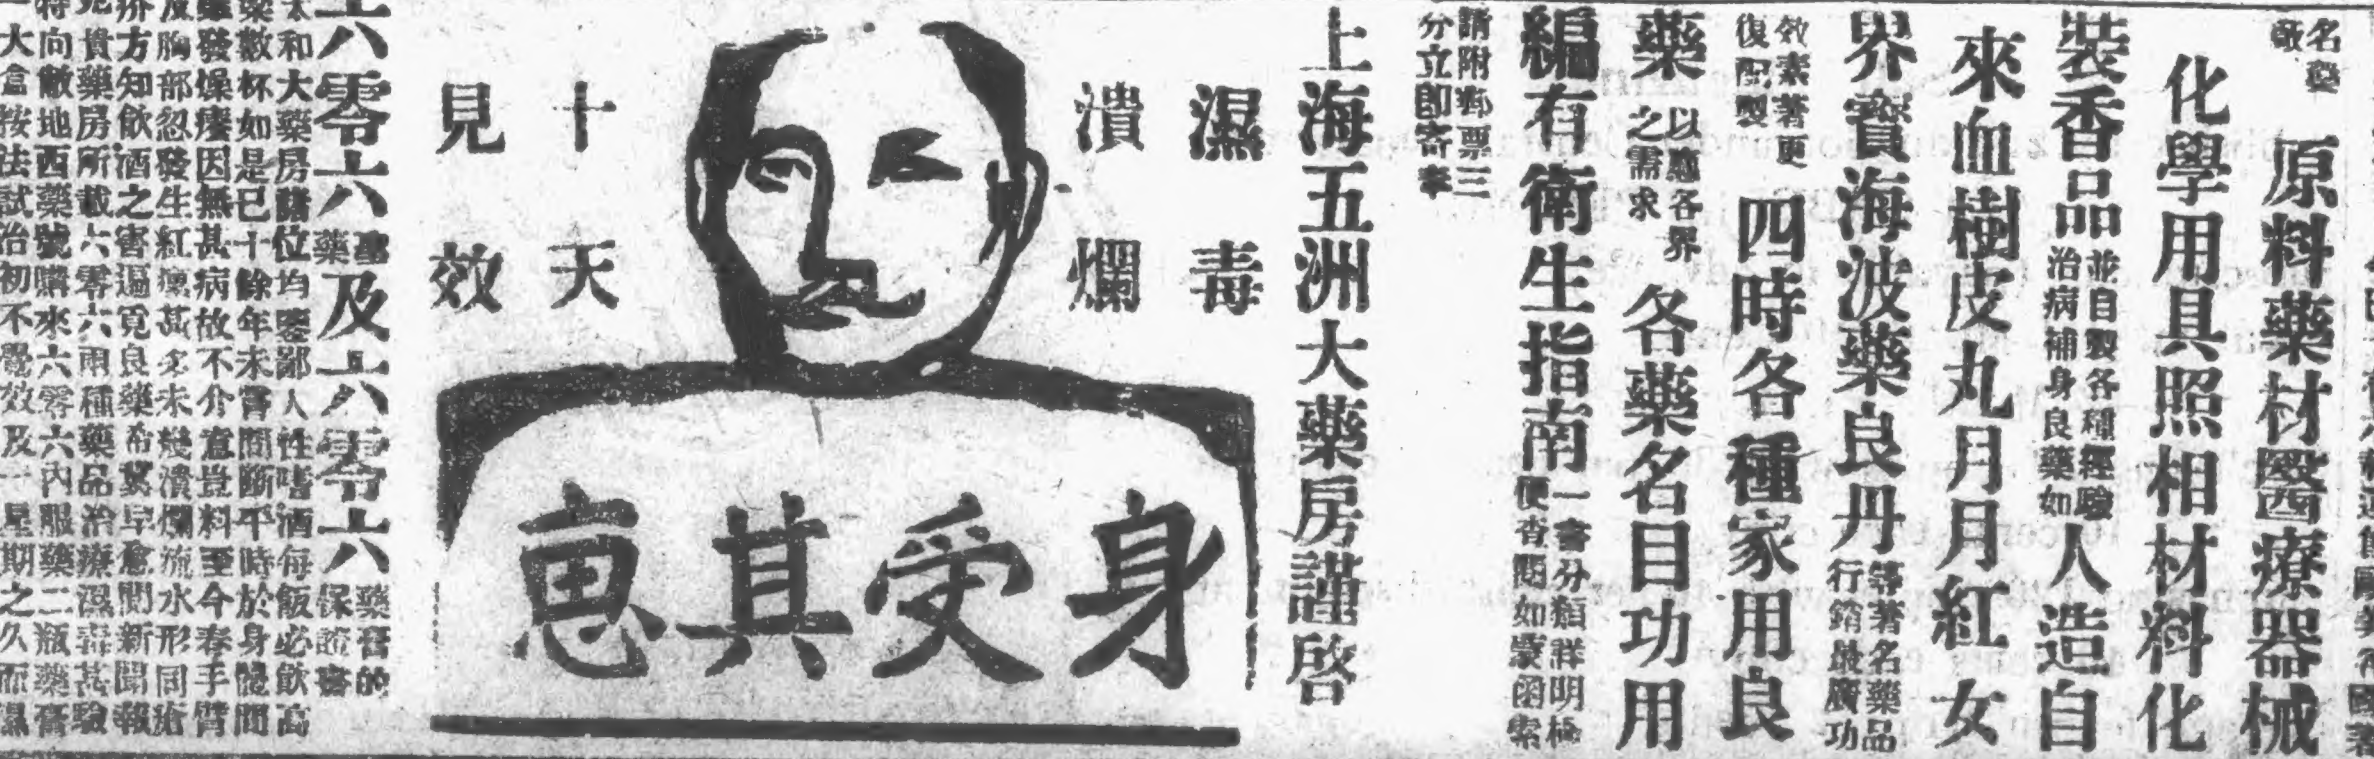 名藥
敬
原料藥材醫療器械
化學用具照相材料化
裝香品
並自製各種經驗
治病補身良藥如
人造自
來血樹皮丸月月紅女
界寶海波藥良丹
等著名藥品
行銷最廣功
效素著更
復配製
四時各種家用良
藥
以應各界
之需求
各藥名目功用
編有衛生指南
一書分類詳明極
便查閱如蒙函索
請附郵票三
分立即寄奉
上海五洲大藥房謹啓
濕毒
潰爛
十天
見效
身受其惠
六零六藥膏及六零六
藥膏的
保證書
太和大藥房諸位均鑒鄙人性嗜酒每飯必飲高
藥數杯如是已十餘年未嘗間斷平時於身體間
雖發燥癢因無甚病故不介意豈料至今春手臂
及胸部忽發生紅癍甚多未幾潰爛流水形同瘡
疥方知飲酒之害遍覓良藥希冀早愈閱新聞報
見貴藥房所載六零六兩種藥品治療濕毒甚驗
特向敝地西藥號購來六零六內服藥二瓶藥膏
一大盒按法試治初不覺效及一星期之久而濕